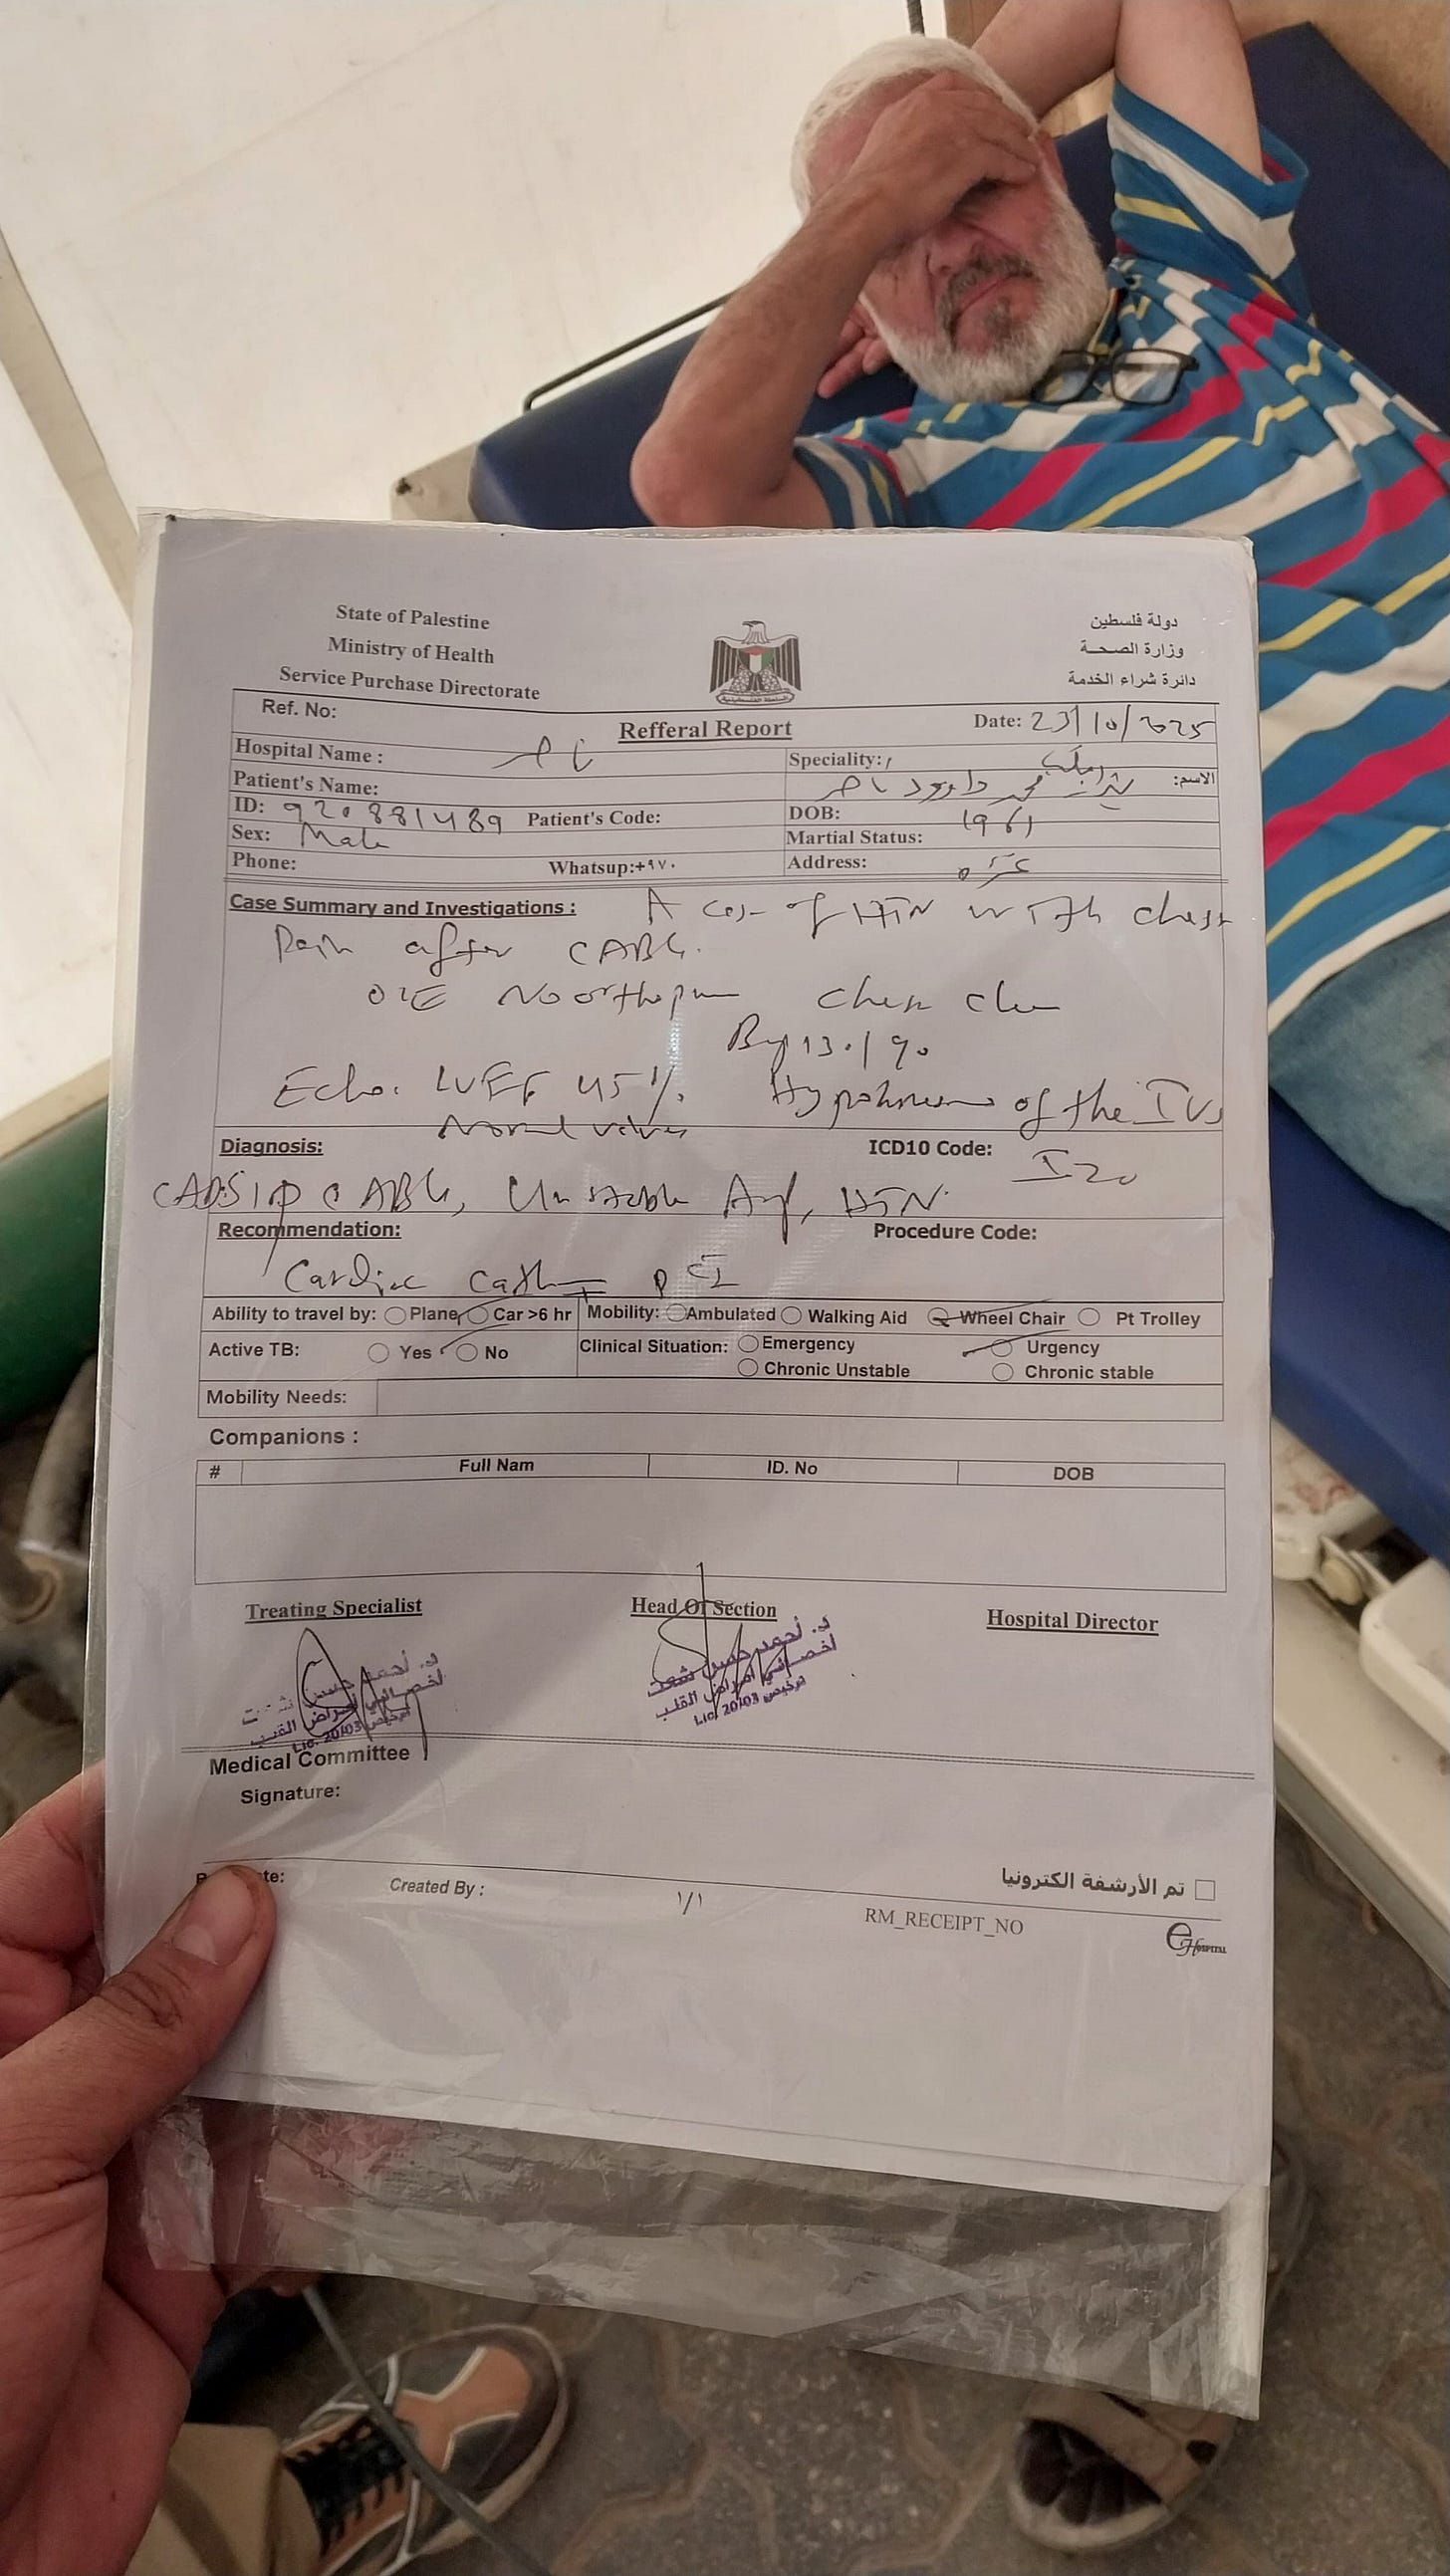 State of Palestine
Ministry of Health
Service Purchase Directorate
دولة فلسطين
وزارة الصحة
دائرة شراء الخدمة
Ref. No:
Refferal Report
Date: 23/10/2025
Hospital Name :
Speciality:
Patient's Name:
محمد داوود ناصر
الاسم:
ID: 920881489 Patient's Code:
DOB: 1961
Sex: Male
Martial Status:
Phone: Whatsup:+٩٧٠
Address: غزة
Case Summary and Investigations : A case of HTN with chest
Pain after CABG.
O/E No orthopnea chest clear
Bp 130/90
Echo: LVEF 45% Hypokinesia of the IVS
Normal valves
Diagnosis:
ICD10 Code: I20
CAD S/P CABG, Unstable Ang, HTN
Recommendation:
Procedure Code:
Cardiac cath ± PCI
Ability to travel by: Plane Car >6 hr Mobility: Ambulated Walking Aid Wheel Chair Pt Trolley
Active TB: Yes No Clinical Situation: Emergency Urgency
Chronic Unstable Chronic stable
Mobility Needs:
Companions :
# Full Nam ID. No DOB
Treating Specialist
Head Of Section
Hospital Director
د. أحمد حسن
أخصائي أمراض القلب
ترخيص Lic. 20103
د. أحمد حسن
أخصائي أمراض القلب
ترخيص Lic. 20103
Medical Committee
Signature:
Created By :
١/١
تم الأرشفة الكترونيا
RM_RECEIPT_NO
eHOSPITAL